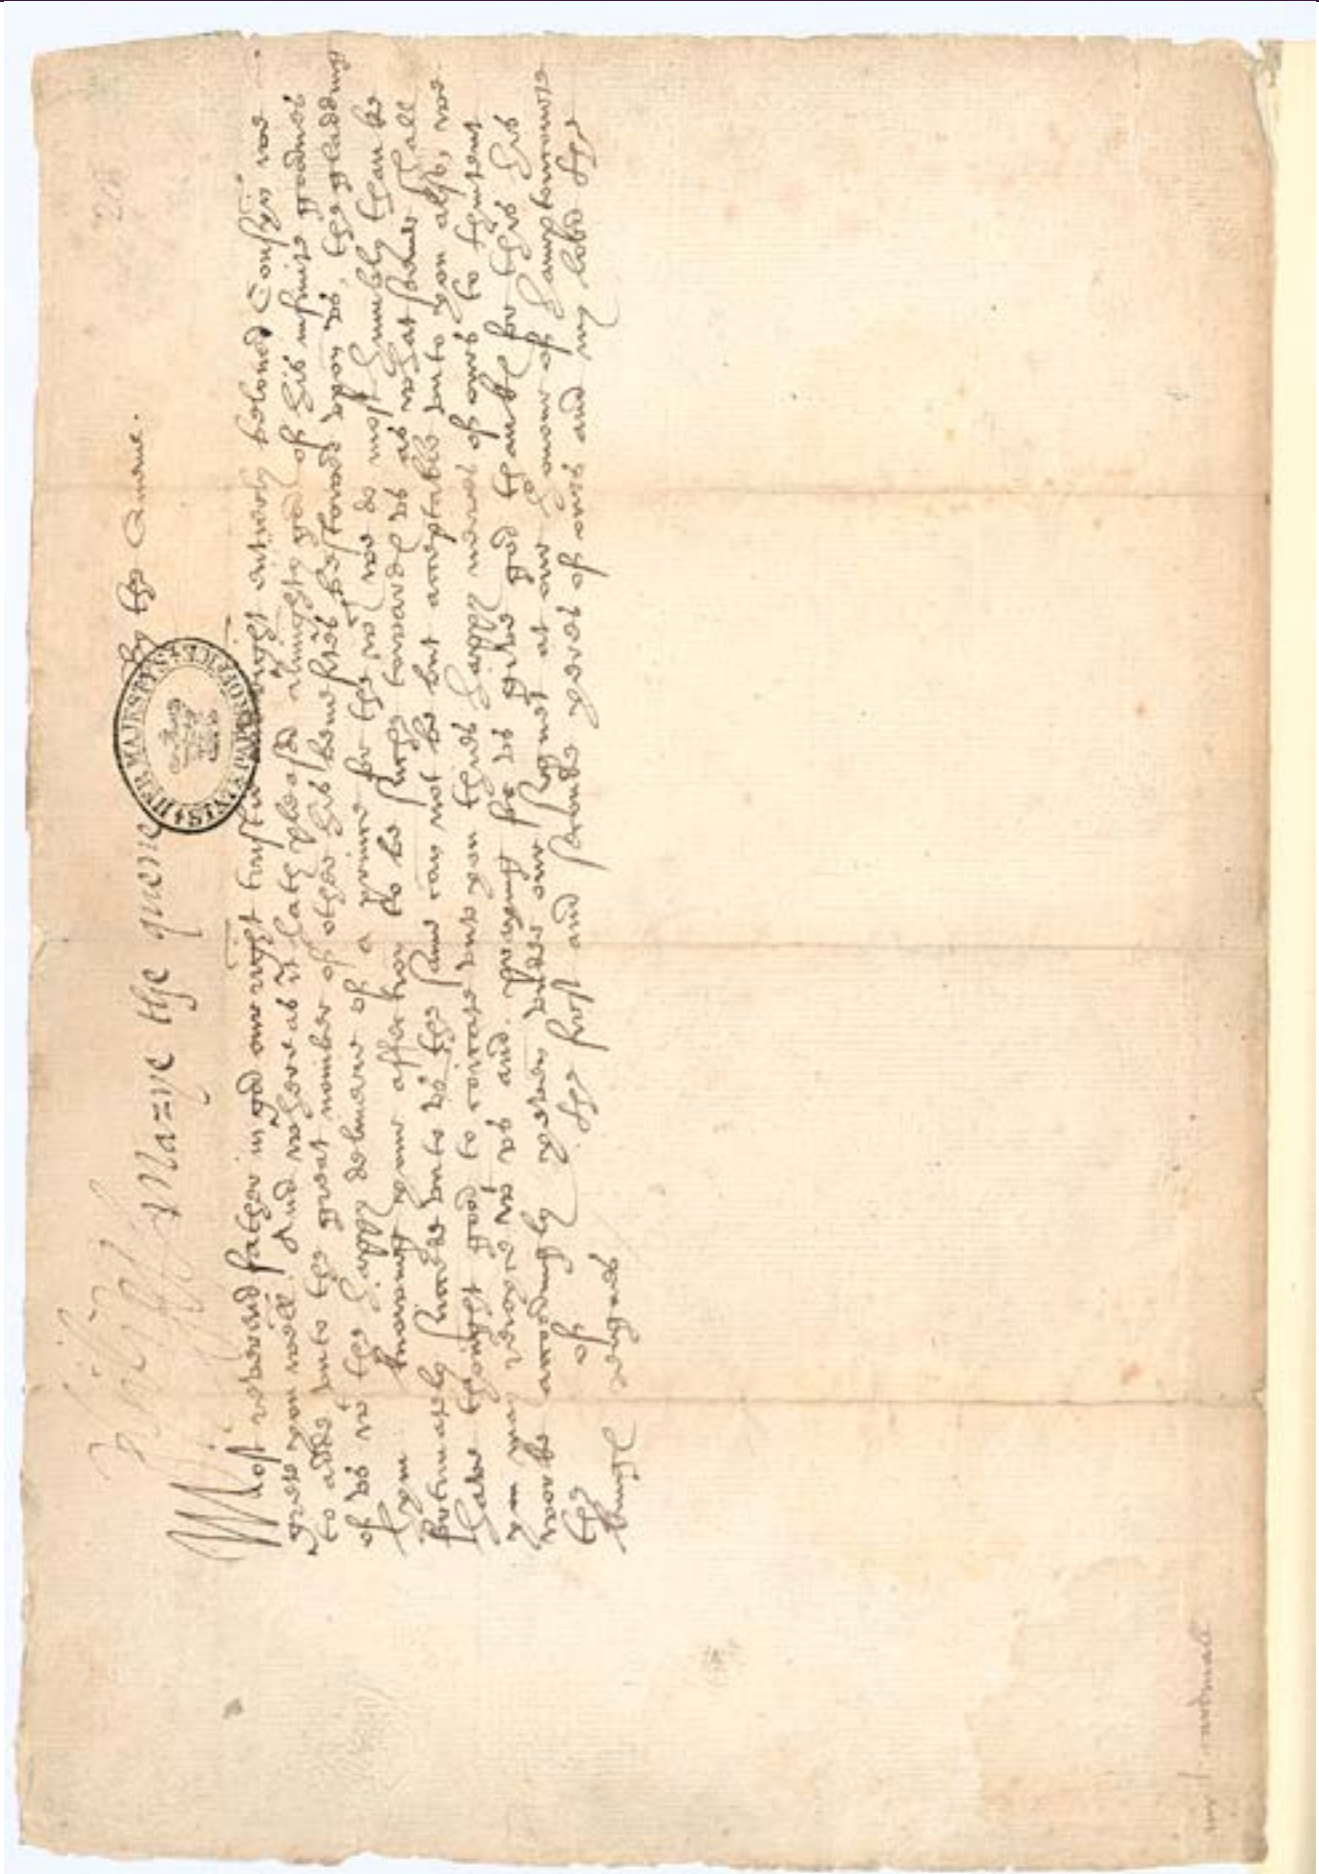 Philipp
Marye the quene
By the Quene.
HER MAJESTYS STATE PAPER OFFICE
Most reverend father in god our right trustie and right entierly beloved Cousyn we
grete you well. And where as it hath pleased almighty god of his infinite goodnes
to adde unto the great nomber of other his benefites bestowed upon us, the gladding
of us wt the happy deliverie of a prince for the wch we do most humbly thanke
hym. knowing your affection to be suche towardes us as what soever shall
fortunately succede unto us the same can not be but acceptable unto you also, we
have thought good to unto you thies happy newes of ours to thintent
you may rejoyce wt us and. praying for us gyve god thankes for this his
worke accordingly yeven under our signet at our honour of hamptoncourte
the of the first and seconde yeres of ours and my lorde the
kinges reignes
my l. cardinall